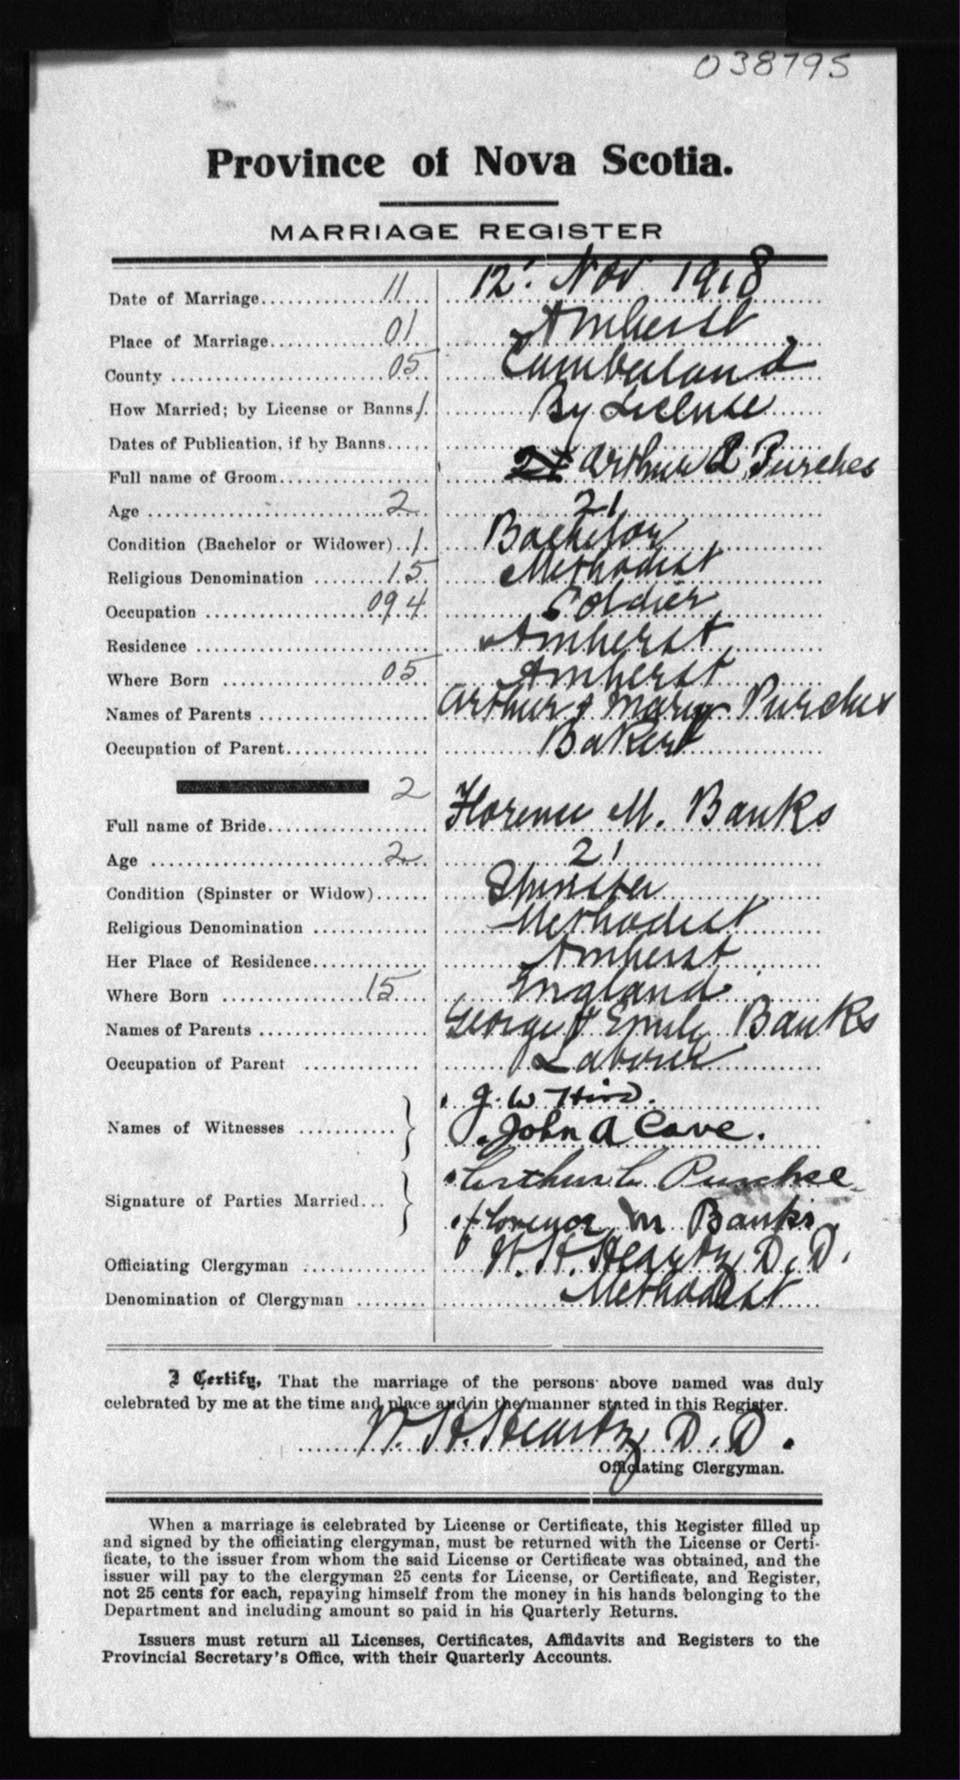 038795
Province of Nova Scotia.
MARRIAGE REGISTER
Date of Marriage 11 12. Nov 1918
Place of Marriage 01 Amherst
County 05 Cumberland
How Married; by License or Banns 1 By License
Dates of Publication, if by Banns
Full name of Groom Arthur Purches
Age 2 21
Condition (Bachelor or Widower) 1 Bachelor
Religious Denomination 15 Methodist
Occupation 094 Soldier
Residence Amherst
Where Born 05 Amherst
Names of Parents Arthur & Mary Purches
Occupation of Parent Baker
2
Full name of Bride Florence M. Banks
Age 2 21
Condition (Spinster or Widow) Spinster
Religious Denomination Methodist
Her Place of Residence Amherst
Where Born 15 England
Names of Parents George & Emily Banks
Occupation of Parent Laborer
Names of Witnesses J. W.
John A Cave.
Signature of Parties Married Arthur Purchse
Florence M Banks
Officiating Clergyman W. H. Heartz D. D.
Denomination of Clergyman Methodist
I Certify, That the marriage of the persons above named was duly
celebrated by me at the time and place and in the manner stated in this Register.
W. H. Heartz D. D.
Officiating Clergyman.
When a marriage is celebrated by License or Certificate, this Register filled up
and signed by the officiating clergyman, must be returned with the License or Certi-
ficate, to the issuer from whom the said License or Certificate was obtained, and the
issuer will pay to the clergyman 25 cents for License, or Certificate, and Register,
not 25 cents for each, repaying himself from the money in his hands belonging to the
Department and including amount so paid in his Quarterly Returns.
Issuers must return all Licenses, Certificates, Affidavits and Registers to the
Provincial Secretary's Office, with their Quarterly Accounts.